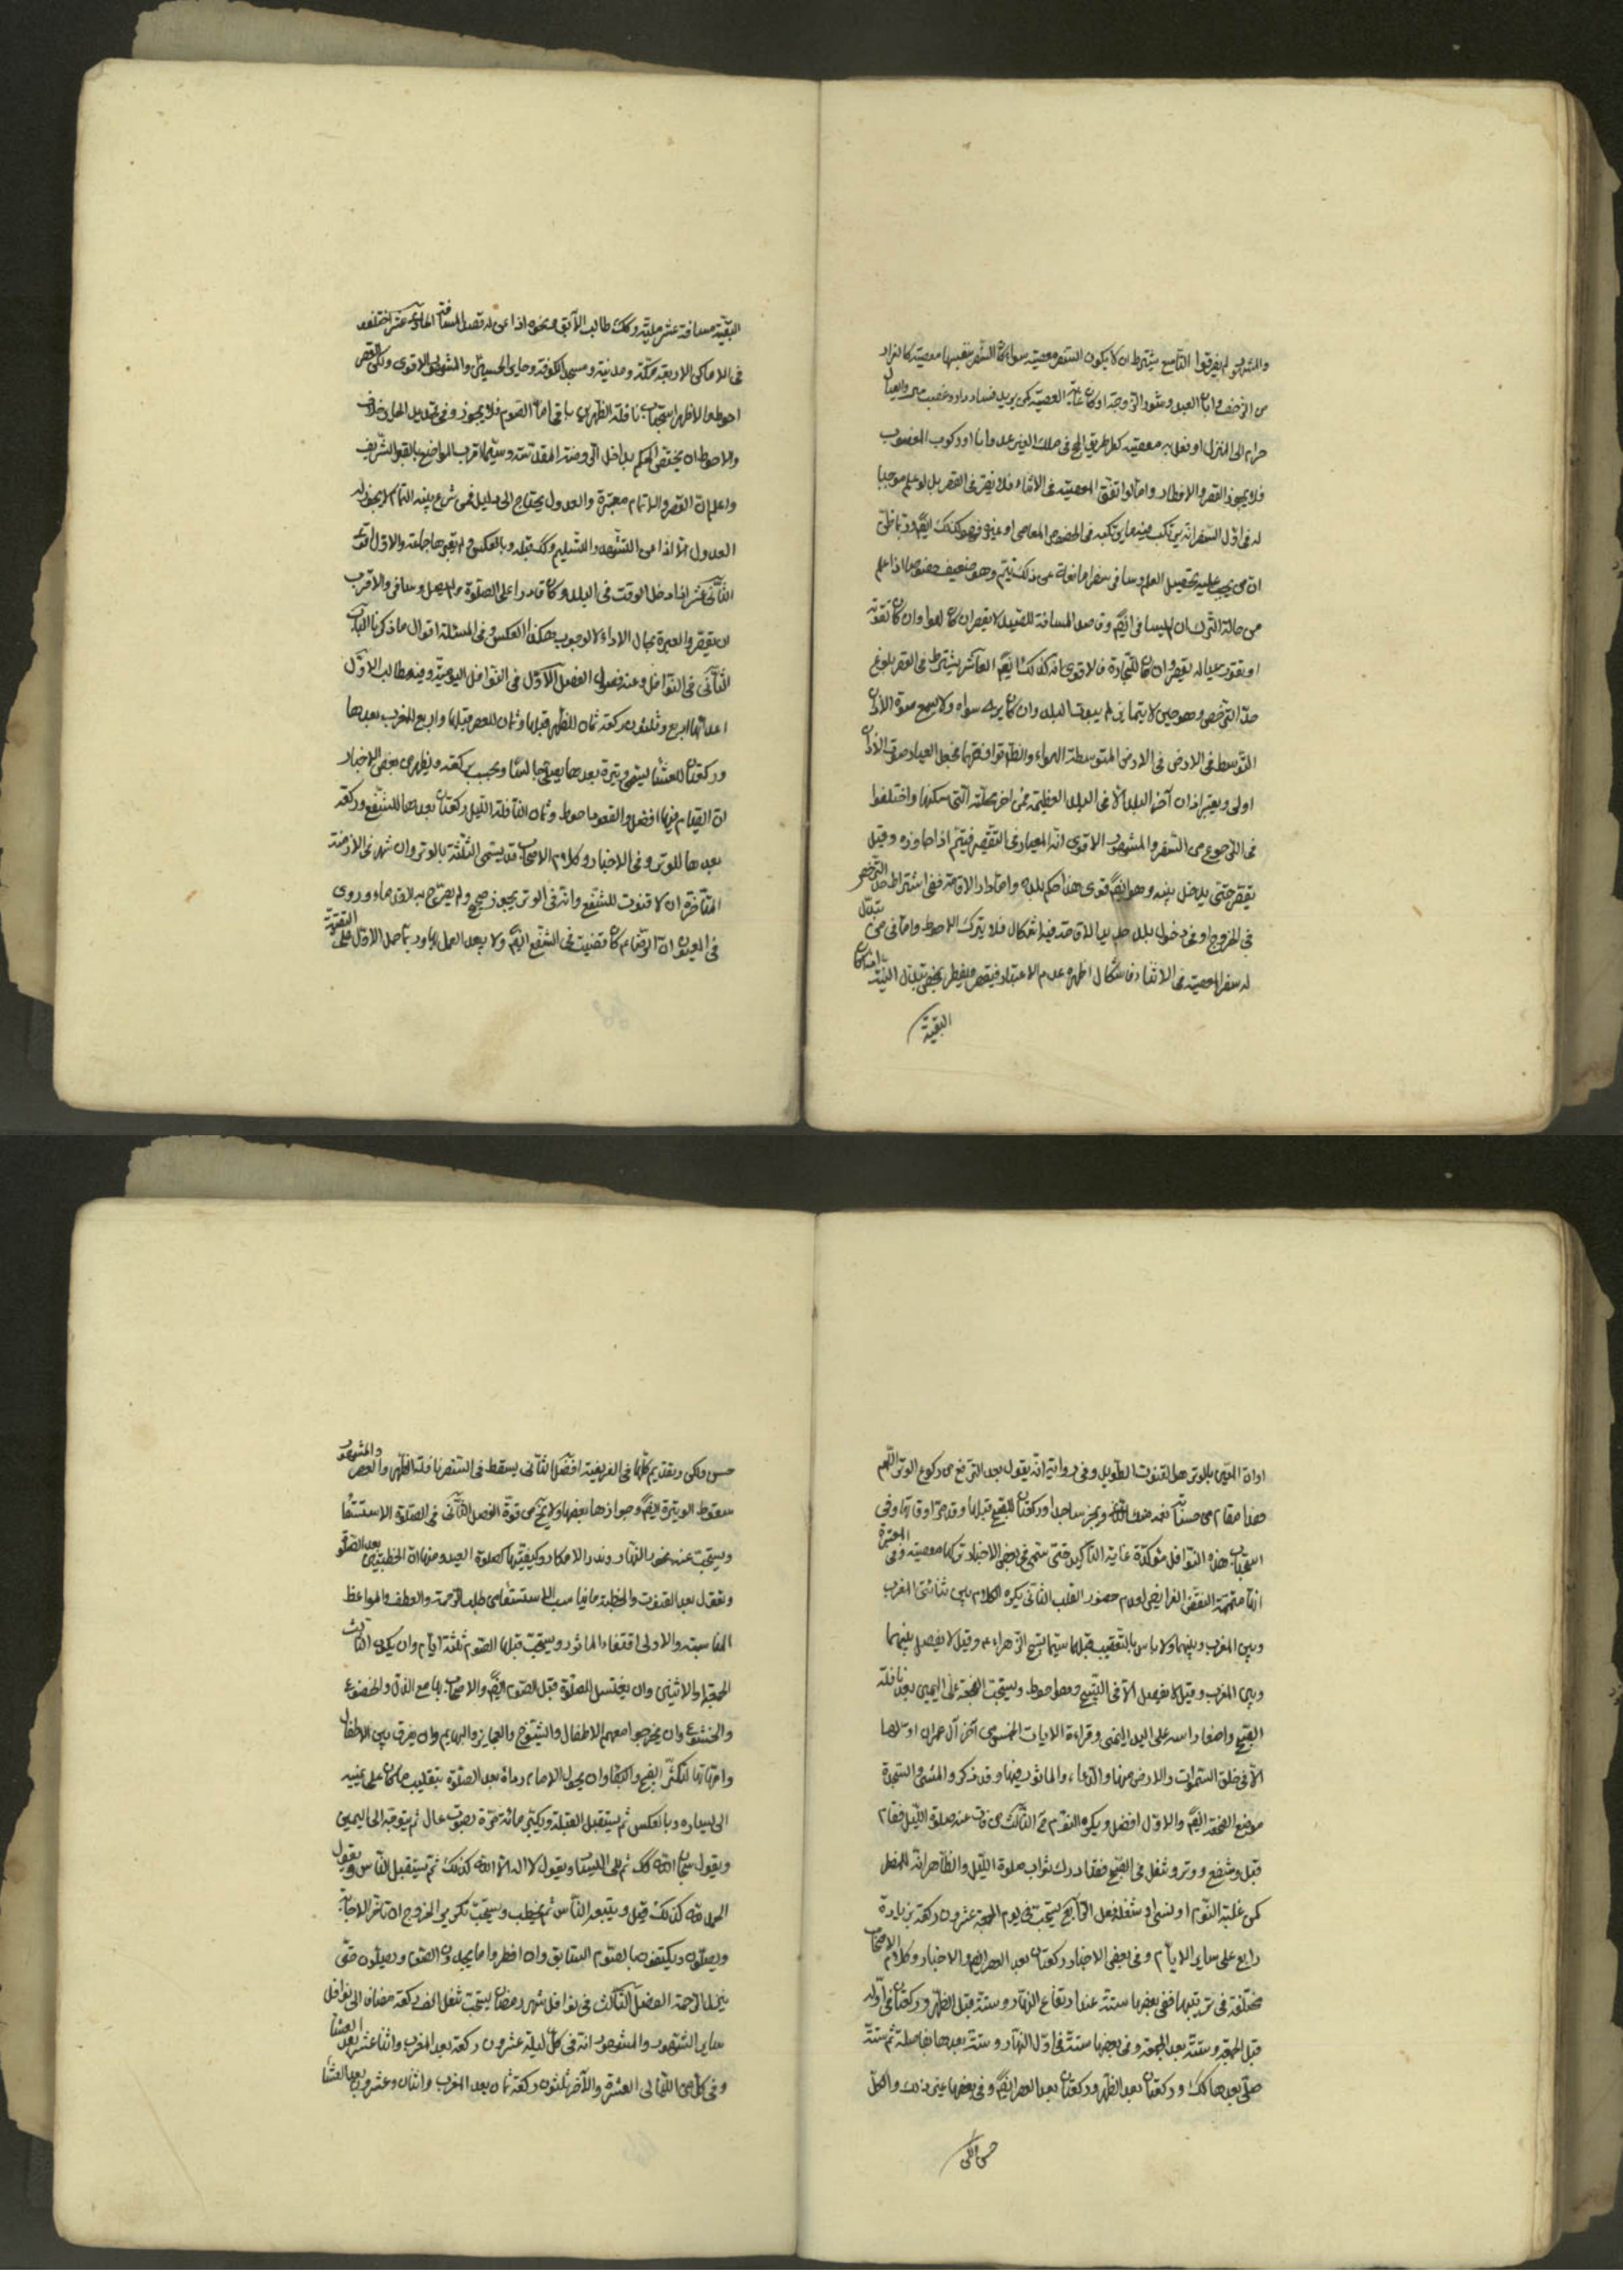 والمشهور لم يفرقوا التاسع يشترط ان لا يكون السفر معصية سواء كان السفر بنفسها معصية كالفرار
من الزحف واباق العبد ونشوز الزوجة او كان غاية المعصية كمن يريد فساد او غصب مبرء والعيال
حرام الى المنزل او فعل به معصية كطريق الحج في ملك الغير عدوانا او ركوب المغصوب
فلا يجوز القصر والافطار واما لو اتفق المعصية في الاثناء فلا يضر في القصر بل لو علم موجبا
ان من يجب عليه تحصيل العلم وسافر سفرا مانعا عن ذلك يتم وهو ضعيف خصوصا اذا علم
من حالة الترك ان لم يسافر ايضا وقاصد المسافة للصيد لا يقصر ان كان لهوا وان كان لقوته
او لقوت عياله يقصر وان كان للتجارة فالاقوى انه كذلك ايضا العاشر يشترط في القصر بلوغ
حد الترخص وهو حين لا يتمايز له بيوت البلد وان كان يرى سواه ولا يسمع صوت الاذان
المتوسط في الارض المتوسطة الهواء والظاهر
اولى ويعتبر اذان آخر البلد الا في البلد العظيم فمن آخر محلته التي يسكنها واختلفوا
في الرجوع من السفر والمشهور الاقوى انه المعيار في التقصير فيتم اذا جاوزه وقيل
يقصر حتى يدخل بيته وهو ايضا قوى هذا حكم بلده واما دار الاقامة ففي اشتراط حد الترخص
في الخروج او في دخول بلد طلبها للاقامة فيه اشكال فلا يترك الاحوط واما في من تبدل
له سفر المعصية في الاثناء فاشكال اظهره عدم الاعتبار فيقصر ويفطر بمحض تبدل النية اذا كان
البقية
البقية مسافة عشر ميلية وكذلك طالب الآبق ونحوه اذا عن له قصد المسافة الحادي عشر اختلفوا
في الاماكن الاربعة مكة ومدينة ومسجد الكوفة وحاير الحسين والمشهور الاقوى ولكن القصر
احوط والاظهر استحباب نافلة الظهرين باقي اما الصوم فلا يجوز وفي تحديد الحاير خلاف
والاحوط ان يختص الحكم بداخل الروضة المقدسة وسيما لاقرب المواضع بالقبر الشريف
واعلم ان القصر والاتمام معتبرة والعدول يحتاج الى دليل فمن شرع بنية التمام لا يجوز له
العدول الا اذا عن التشهد والتسليم وكذلك قبله وبالعكس ولم يعتبرها جماعة والاول اقوى
الثاني عشر اذا دخل الوقت في البلد وكان قادرا على الصلوة ولم يصل وسافر والاقرب
ان يقصر والعبرة بحال الاداء لا الوجوب هكذا العكس وفي المسئلة اقوال ما ذكرنا الباب
الثاني في النوافل وعنه فصول الفصل الاول في النوافل اليومية وفيه مطالب الاول
اعدادها اربع وثلثون ركعة ثمان للظهر قبلها وثمان للعصر قبلها واربع للمغرب بعدها
وركعتان للعشاء ليسمى وتيرة بعدها يصليها جالسا ويحسب بركعة ويظهر من بعض الاخبار
ان القيام فيها افضل والقعود احوط وثمان النافلة الليل ركعتان بعدها للشفع وركعة
بعدها للوتر وفي الاخبار وكلام الاصحاب قد يسمى الثلثة بالوتر وان شهر في الازمنة
المتأخرة ان لا قنوت للشفع وانه في الوتر يجوز صحيح ولم يصرح به القدماء وروى
في العيون ان الرضاء كان قضيت في الشفع ايضا ولا يبعد العمل بها وربما حمل الاول على التقية
اداة المعتبر بالوتر هو القنوت الطويل وفي رواية انه يقول بعد الترفع من ركوع الوتر اللهم
هذا مقام من حسناته نعمة منك الخ ويخر ساجدا وركعتان للصبح قبلها وقد مر اوقاتها وفي
استحباب هذه النوافل مؤكدة غاية التاكيد حتى سمى في بعض الاخبار تركها معصية وفي المعتبرة
انها متممة لنقص الفرايض لعدم حضور القلب الثاني يكره الكلام بين ثنائتى المغرب
وبين المغرب وبينهما ولا باس بالتعقيب قبلها سيما تسبيح الزهراء ع وقيل لا يفصل بينهما
وبين المغرب وقيل لا يفصل الا في التسبيح وهو احوط ويستحب الضجعة على اليمين بعد نافلة
الصبح واضعا راسه على اليد اليمنى وقراءة الايات الخمس من آخر آل عمران اولها
الا في خلق السموات والارض منها والدعاء والماثور فيها وقد ذكر والمشي والسجدة
موضع الضجعة ايضا والاول افضل ويكره النوم ح الثالث من فات عنه صلوة الليل فقام
قبل وشفع وتر وشغل في الصبح فقد ادرك ثواب صلوة الليل والظاهر انه للمضطر
كمن غلبة النوم او نسى او شغله فعل الرابع يستحب في يوم الجمعة عشرون ركعة بزيادة
رابع على ساير الايام وفي بعض الاخبار ركعتان بعد العصر ايضا والاخبار وكلام الاصحاب
مختلفة في ترتيبها ففي بعضها ستة عند ارتفاع النهار وستة قبل الظهر وركعتان في اوله
قبل الجمعة وستة بعد الجمعة وفي بعضها ستة في اول النهار وستة بعدها بفاصلة ثم ستة
صلى بعدها كذلك وركعتان بعد الظهر وركعتان بعد العصر ايضا وفي بعضها غير ذلك والكل
حسن ولكن
حسن ولكن وتقديم كلها في الفريضة افضل الثاني يسقط في السفر نافلة الظهر والعصر والمشهور
سقوط الوتيرة ايضا وجوازها بعضها ولا يخ من قوة الفصل الثاني في الصلوة الاستسقاء
ويستحب عند غور الانهار وندر الامطار وكيفيتها كصلوة العيد ومنها ان الخطبتين بعد الصلوة
ونقول بعد القنوت والخطبة ما يناسب الاستسقاء من طلب الرحمة والعطف والمواعظ
المناسبة والاولى اقتفاء الماثور ويستحب قبلها الصوم ثلثة ايام وان يكون الثالث
الجمعة او الاثنين وان يغتسل للصلوة قبل الصوم ايضا والاصحاب بها مع الذل والخضوع
والخشوع وان يخرجوا معهم الاطفال والشيوخ والعجايز والبهايم وان يفرق بين الاطفال
وامهاتها لتكثر الضج والبكاء وان يحول الامام رداه بعد الصلوة بتقليب ما كان على يمينه
الى يساره وبالعكس ثم يستقبل القبلة ويكبر مائة مرة بصوت عال ثم يتوجه الى اليمين
ويقول سبحان الله كذلك ثم الى اليسار ويقول لا اله الا الله كذلك ثم يستقبل الناس ويقول
الحمد لله كذلك قيل ويتبعه الناس ثم يخطب ويستحب تكرير الخروج ان تاخر الاجابة
ويصلون ويكتفون بالصوم السابق وان افطروا ما يجددون الصوم ويصلون حتى
ينزل الرحمة الفصل الثالث في نوافل شهر رمضان يستحب شغل الف ركعة مضافا الى نوافل
ساير الشهور والمشهور انه في كل ليلة عشرون ركعة بعد المغرب واثنا عشر بعد العشاء
وفي كل من الليالى العشرة والآخر ثلثون ركعة ثمان بعد المغرب واثنان وعشرون بعد العشاء